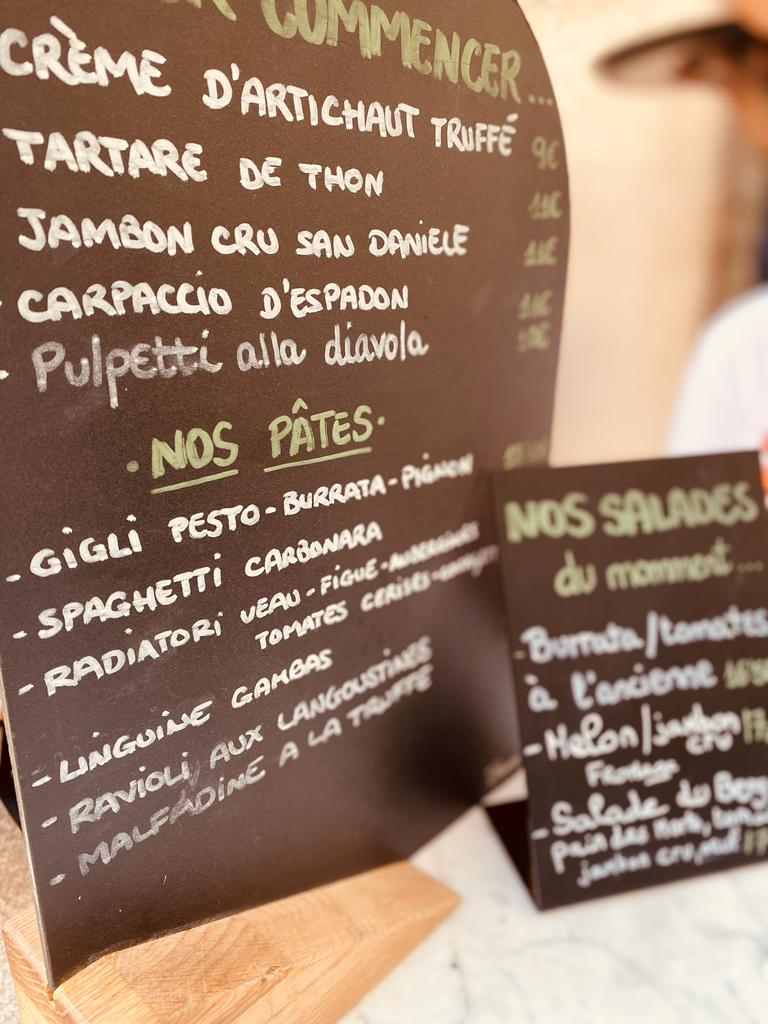 COMMENCER...
CRÈME D'ARTICHAUT TRUFFÉ 9€
TARTARE DE THON 11€
JAMBON CRU SAN DANIELE
CARPACCIO D'ESPADON
- Pulpetti alla diavola
· NOS PÂTES ·
- GIGLI PESTO - BURRATA - PIGNON
- SPAGHETTI CARBONARA
- RADIATORI VEAU - FIGUE - AUBERGINES
TOMATES CERISES -
- LINGUINE GAMBAS
- RAVIOLI AUX LANGOUSTINES
- MALFADINE A LA TRUFFE
NOS SALADES
du momment...
- Burrata/tomates
à l'ancienne
- Melon/jambon
cru
- Salade du
jambon cru,